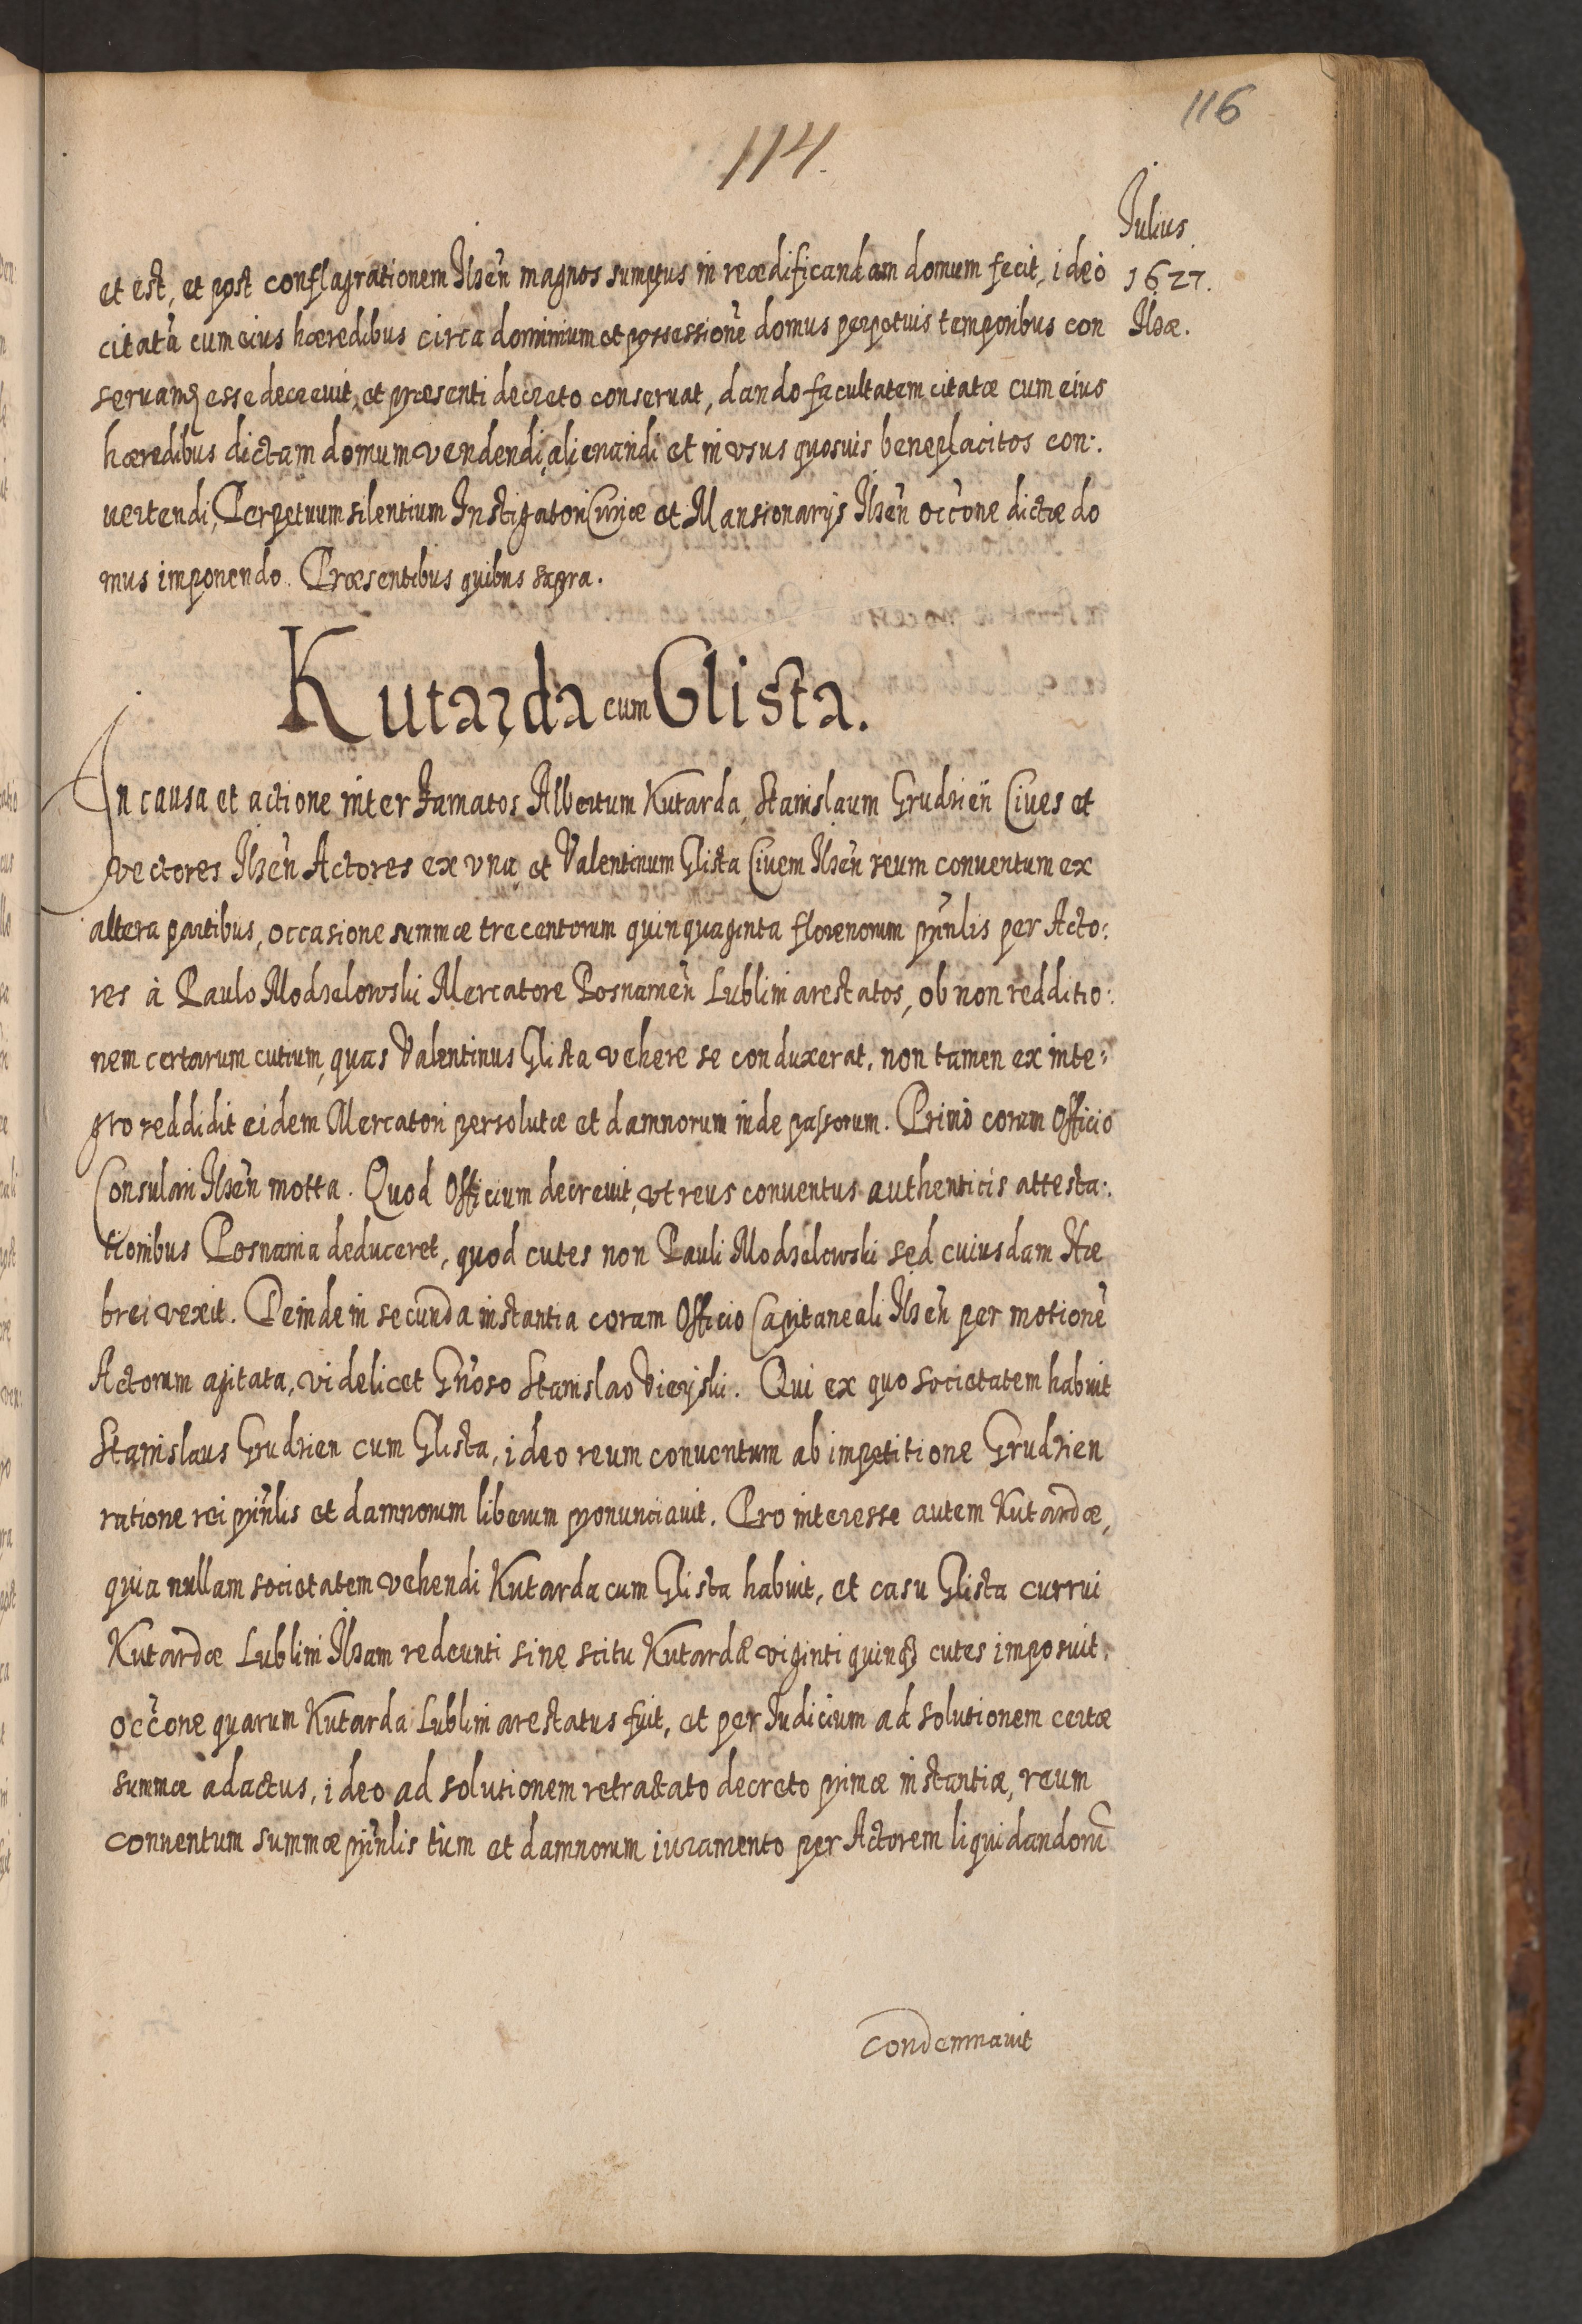 116
114.
Julius
1627.
Ilzæ.
et est, et post conflagrationem Ilzeñ magnos sumptus in reædificandam domum fecit, ideò
citatã cum eius hæredibus circa dominium et possessionẽ domus perpetuis temporibus con
seruamꝫ esse decreuit, et præsenti decreto conseruat, dando facultatem citatæ cum eius
hæredibus dictam domum vendendi, alienandi et in vsus quosuis beneplacitos con:
uertendi, Perpetuum silentium Instigatori Curiæ et Mansionarijs Ilzeñ occ̃one dictæ do
mus imponendo. Præsentibus quibus supra.
Kutarda cum Glista.
In causa et actione inter famatos Albertum Kutarda, Stanislaum Grudzień Ciues et
vectores Ilzeñ Actores ex vna, et Valentinum Glista Ciuem Ilzeñ reum conuentum ex
altera partibus, occasione summæ trecentorum quinquaginta florenorum prĩnlis per Acto:
res à Paulo Modzelowski Mercatore Posnanieñ Lublini arestatos, ob non redditio:
nem certarum cutium, quas Valentinus Glista vehere se conduxerat, non tamen ex inte:
gro reddidit eidem Mercatori persolutæ et damnorum inde passorum. Primò coram Officio
Consulari Ilzeñ motta. Quod Officium decreuit, vt reus conuentus authenticis attesta:
tionibus Posnania deduceret, quod cutes non Pauli Modzelowski sed cuiusdam Hæ
brei vexit. Deinde in secunda instantia coram Officio Capitaneali Ilzeñ per motionẽ
Actorum agitata, videlicet Gñoso Stanislao Vieyski. Qui ex quo societatem habuit
Stanislaus Grudzien cum Glista, ideo reum conuentum ab impetitione Grudzien
ratione rei prĩnlis et damnorum liberum pronunciauit. Pro interesse autem Kutardæ,
quia nullam societatem vehendi Kutarda cum Glista habuit, et casu Glista currui
Kutardæ Lublini Ilzam redeunti sine scitu Kutardæ viginti quinqꝫ cutes imposuit.
occ̃one quarum Kutarda Lublini arestatus fuit, et per Iudicium ad solutionem certæ
summæ adactus, ideo ad solutionem retractato decreto primæ instantiæ, reum
conuentum summæ prĩnlis tùm et damnorum iuramento per Actorem liquidandorũ
condemnauit